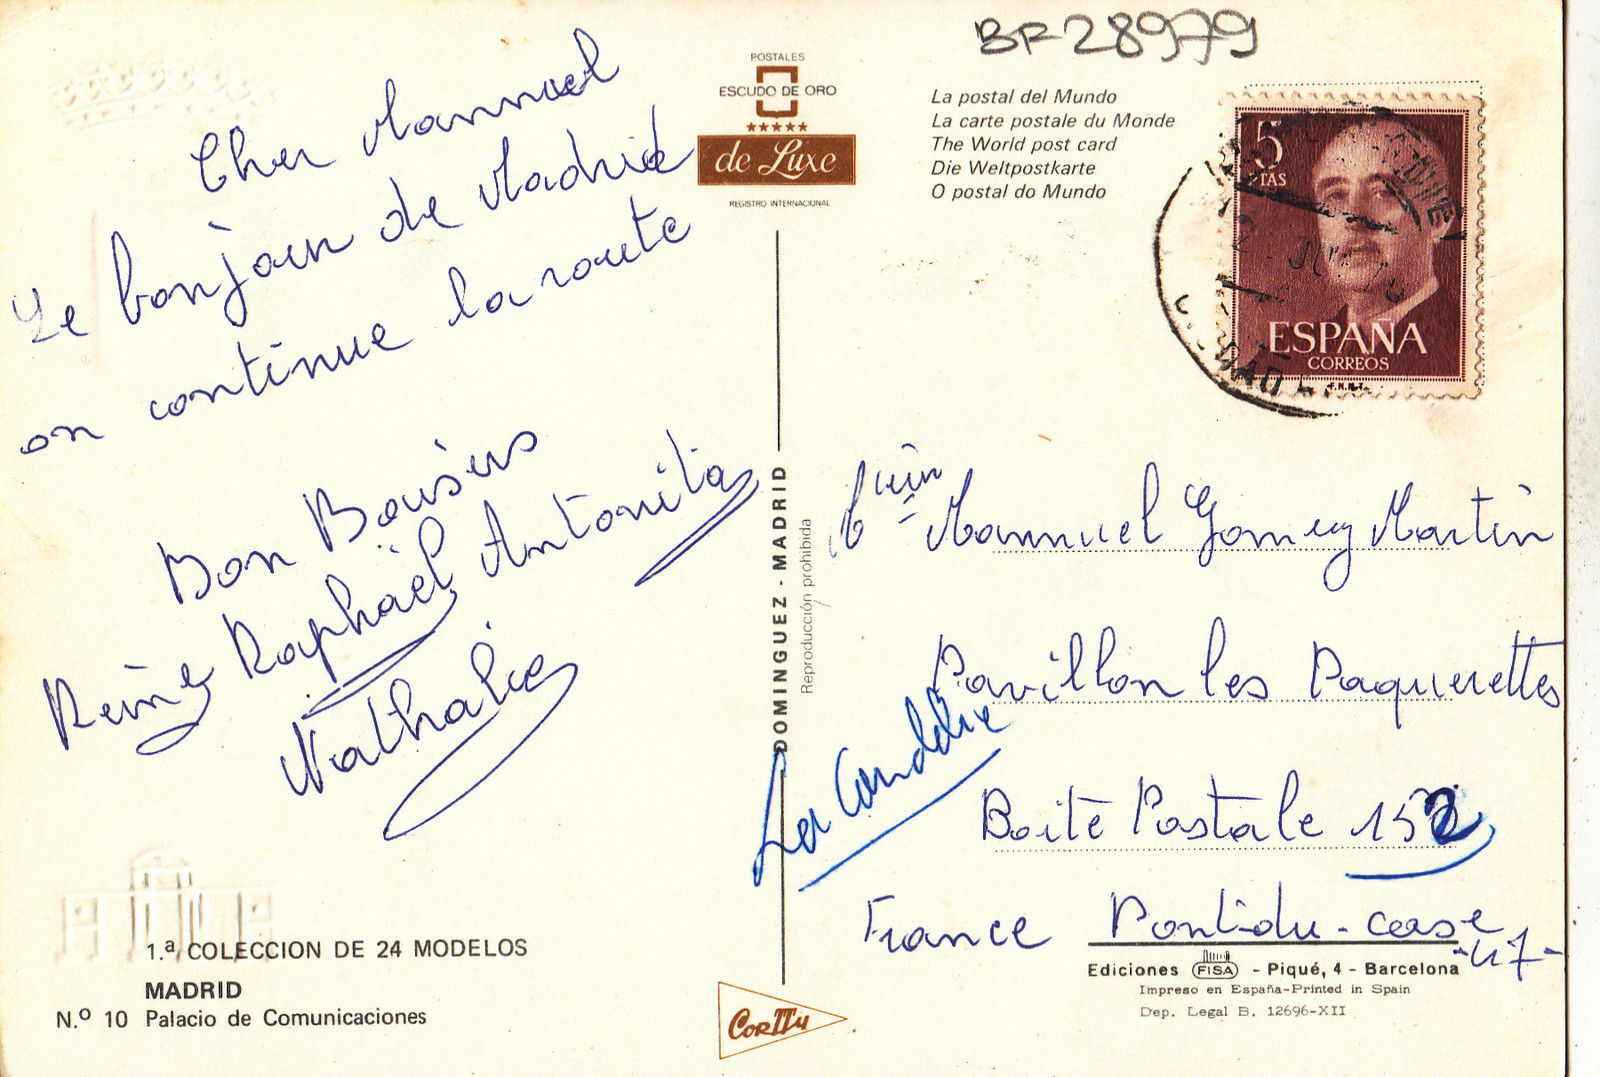 BF28979
Cher Mannuel
Le bonjour de Madrid
on continue la route
Bon Baisers
Reiné Raphaël Antonita
Nathalie
1.ª COLECCION DE 24 MODELOS
MADRID
N.º 10 Palacio de Comunicaciones
POSTALES
ESCUDO DE ORO
★★★★★
de Luxe
REGISTRO INTERNACIONAL
DOMINGUEZ - MADRID
Reproducción prohibida
CORTTY
La postal del Mundo
La carte postale du Monde
The World post card
Die Weltpostkarte
O postal do Mundo
5
PTAS
ESPAÑA
CORREOS
F.N.M.T.
Mannuel Gomez Martin
Pavillon les Paquerettes
La Candélie
Boite Postale 152
France Pont-du-casse
-47-
Ediciones FISA - Piqué, 4 - Barcelona
Impreso en España-Printed in Spain
Dep. Legal B. 12696-XII